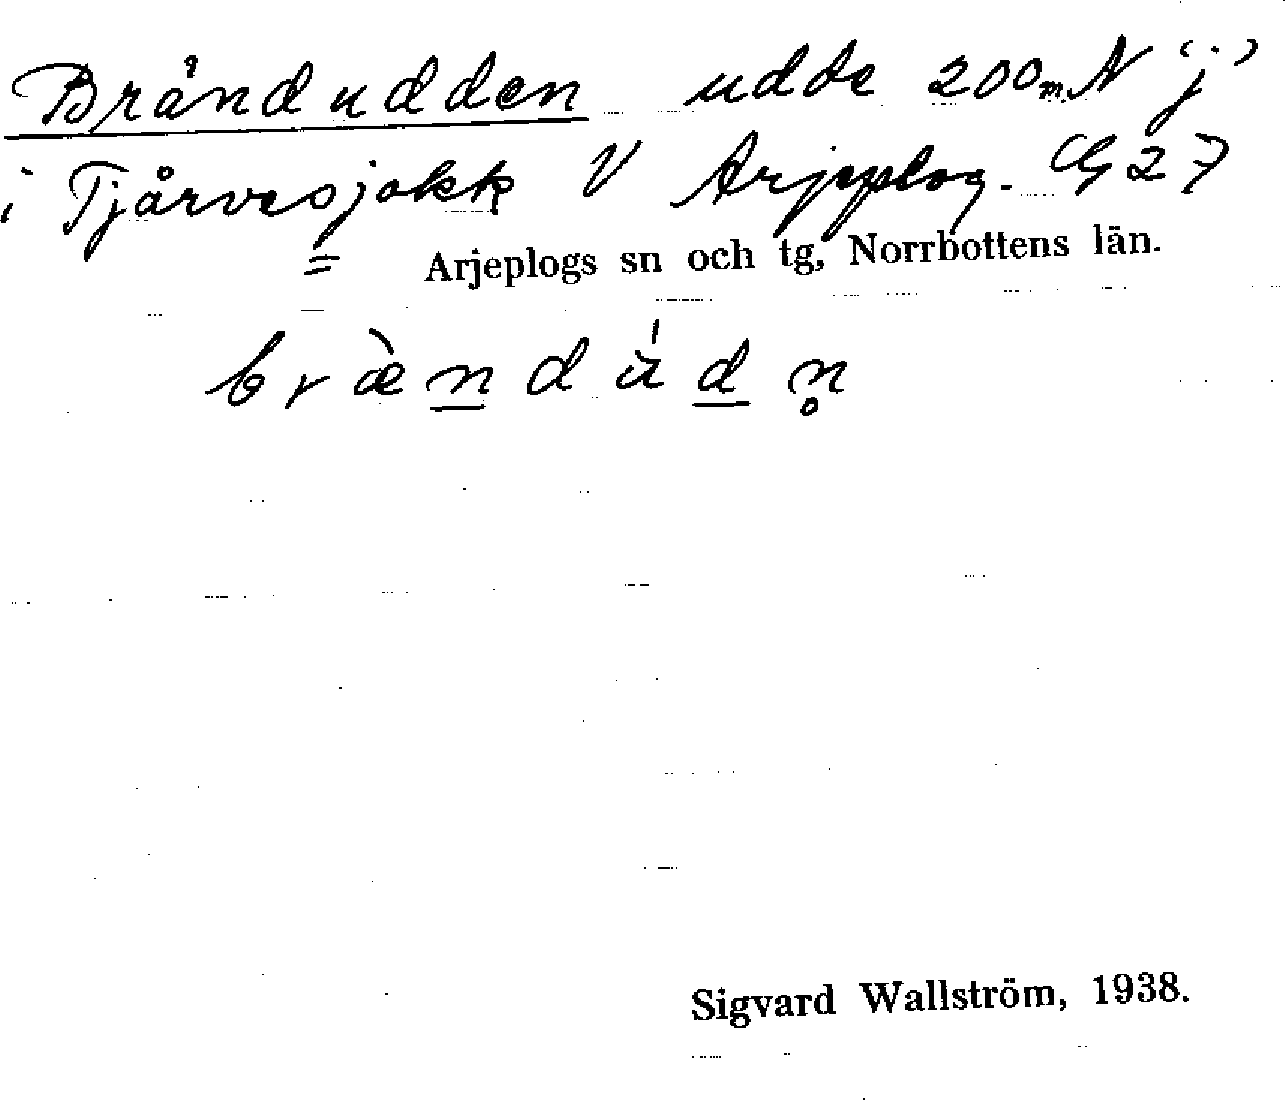 Brändudden udde 200 m N 'j'
i Tjårvesjokk V Arjeplog. G 27
Arjeplogs sn och tg, Norrbottens län.
bræ̀ndúdn̥
Sigvard Wallström, 1938.